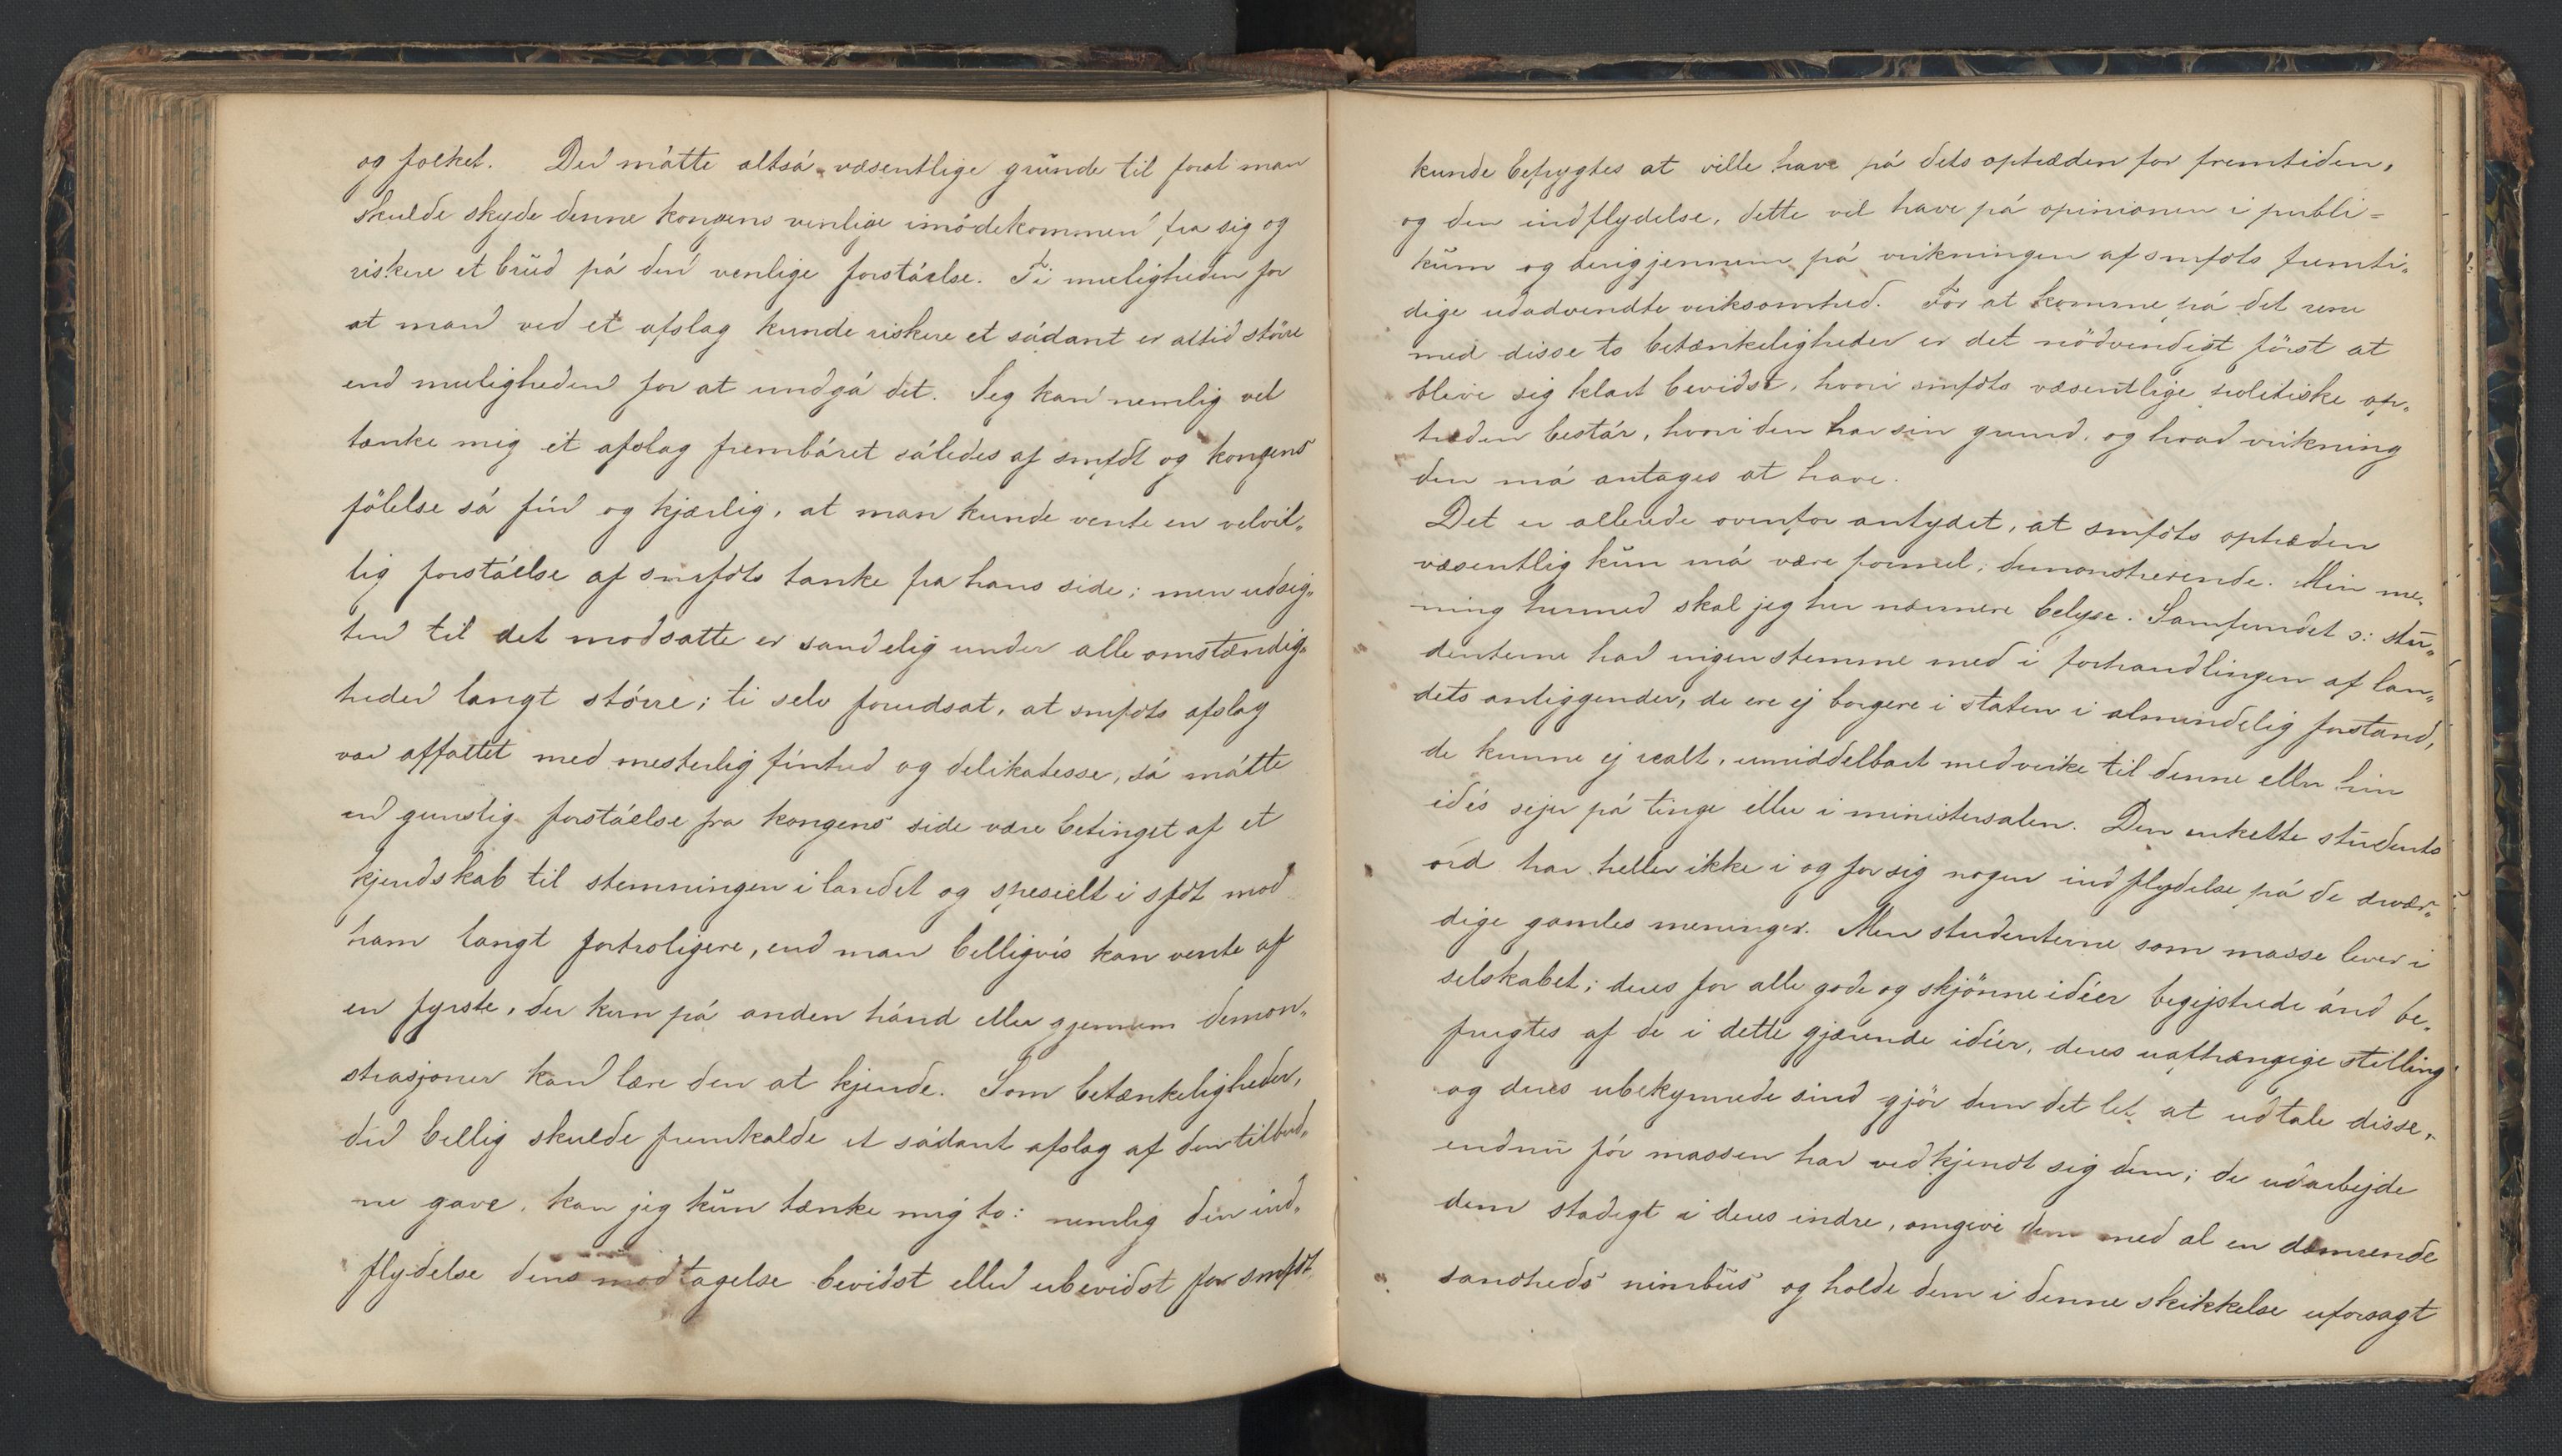 og folket. Der måtte altså væsentlige grunde til forat man
skulde skyde denne kongens venlige imødekommen fra sig og
riskere et brud på den venlige forståelse. Ti muligheden for
at man ved et afslag kunde riskere et sådant er altid större
end muligheden for at undgå det. Jeg kan nemlig vel
tænke mig et afslag frembåret således af smfdt og kongens
fölelse så fin og kjærlig, at man kunde vente en velvil-
lig forståelse af smfdts tanke fra hans side; men udsig-
ten til det modsatte er sandelig under alle omstændig-
heder langt större; ti selv forudsat, at smfdts afslag
var affattet med mesterlig finhed og delikatesse, så måtte
en gunstig forståelse fra kongens side være betinget af et
kjendskab til stemningen i landet og spesielt i sfdt mod
ham langt fortroligere, end man billigvis kan vente af
en fyrste, der kun på anden hånd eller gjennem demon-
strasjoner kan lære den at kjende. Som betænkeligheder,
der billig skulde fremkalde et sådant afslag af den tilbud-
ne gave, kan jeg kun tænke mig to: nemlig den ind-
flydelse dens modtagelse bevidst eller ubevidst for smfdt
kunde befrygtes at ville have på dets optræden for fremtiden,
og den indflydelse, dette vil have på opinionen i publi-
kum og derigjennem på virkningen af smfdts fremti-
dige udadvendte virksomhed. For at komme på det rene
med disse to betænkeligheder er det nödvendigt först at
blive sig klart bevidst, hvori smfdts væsentlige politiske op-
træden består, hvori den har sin grund, og hvad virkning
den må antages at have.
Det er allerede ovenfor antydet, at smfdts optræden
væsentlig kun må være formel, demonstrerende. Min me-
ning hermed skal jeg her nærmere belyse. Samfundet ɔ: stu-
denterne har ingen stemme med i forhandlingen af lan-
dets anliggender, de ere ej borgere i staten i almindelig forstand,
de kunne ej realt, umiddelbart medvirke til denne eller hin
idés sejer på tinge eller i ministersalen. Den enkelte students
ord har heller ikke i og for sig nogen indflydelse på de ærvær-
dige gamles meninger. Men studenterne som masse lever i
selskabet; deres for alle gode og skjönne idéer begejstrede ånd be-
frugtes af de i dette gjærende idéer, deres uafhængige stilling
og deres ubekymrede sind gjör dem det let at udtale disse,
endnu för massen har vedkjendt sig dem; de udarbejde
dem stadigt i deres indre, omgive dem med al en dæmrende
sandheds nimbus og holde dem i denne skikkelse uforsagt